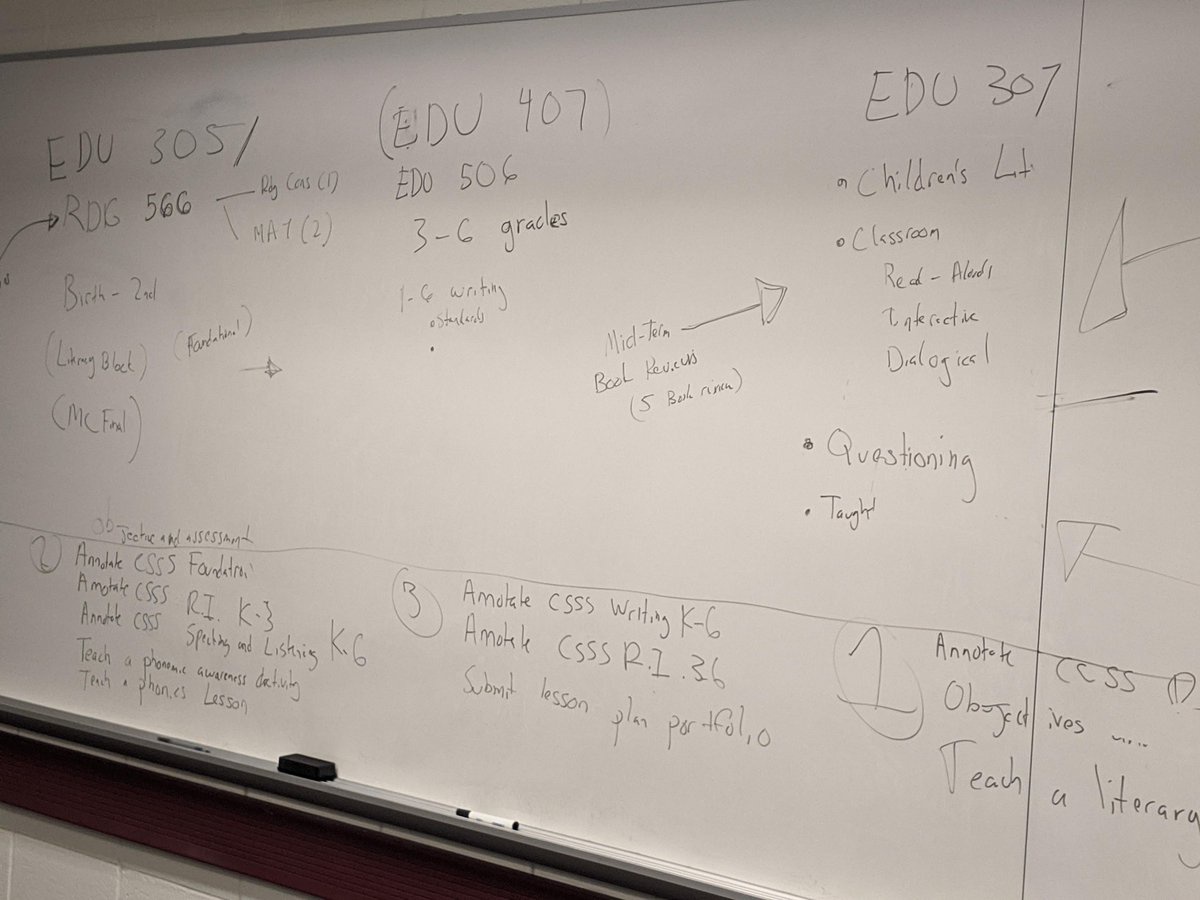 EDU 305/
RDG 566
Rdg Cons (1)
MAT (2)
Birth - 2nd
(Literacy Block)
(Foundational)
(MC Final)
(EDU 407)
EDU 506
3-6 grades
1-6 writing
• Standards
•
Mid-Term
Book Reviews
(5 Book
EDU 307
• Children's Lit
• Classroom
Read-Alouds
Interactive
Dialogical
• Questioning
• Taught
Objective and assessment
2
Annotate CSSS Foundation
Annotate CSSS R.I. K-3
Annotate CSSS Speaking and Listening K-6
Teach a phonemic awareness activity
Teach a phonics Lesson
3
Annotate CSSS Writing K-6
Annotate CSSS R.I. 3-6
Submit lesson plan portfolio
1
Annotate CCSS
Objectives .....
Teach a literary